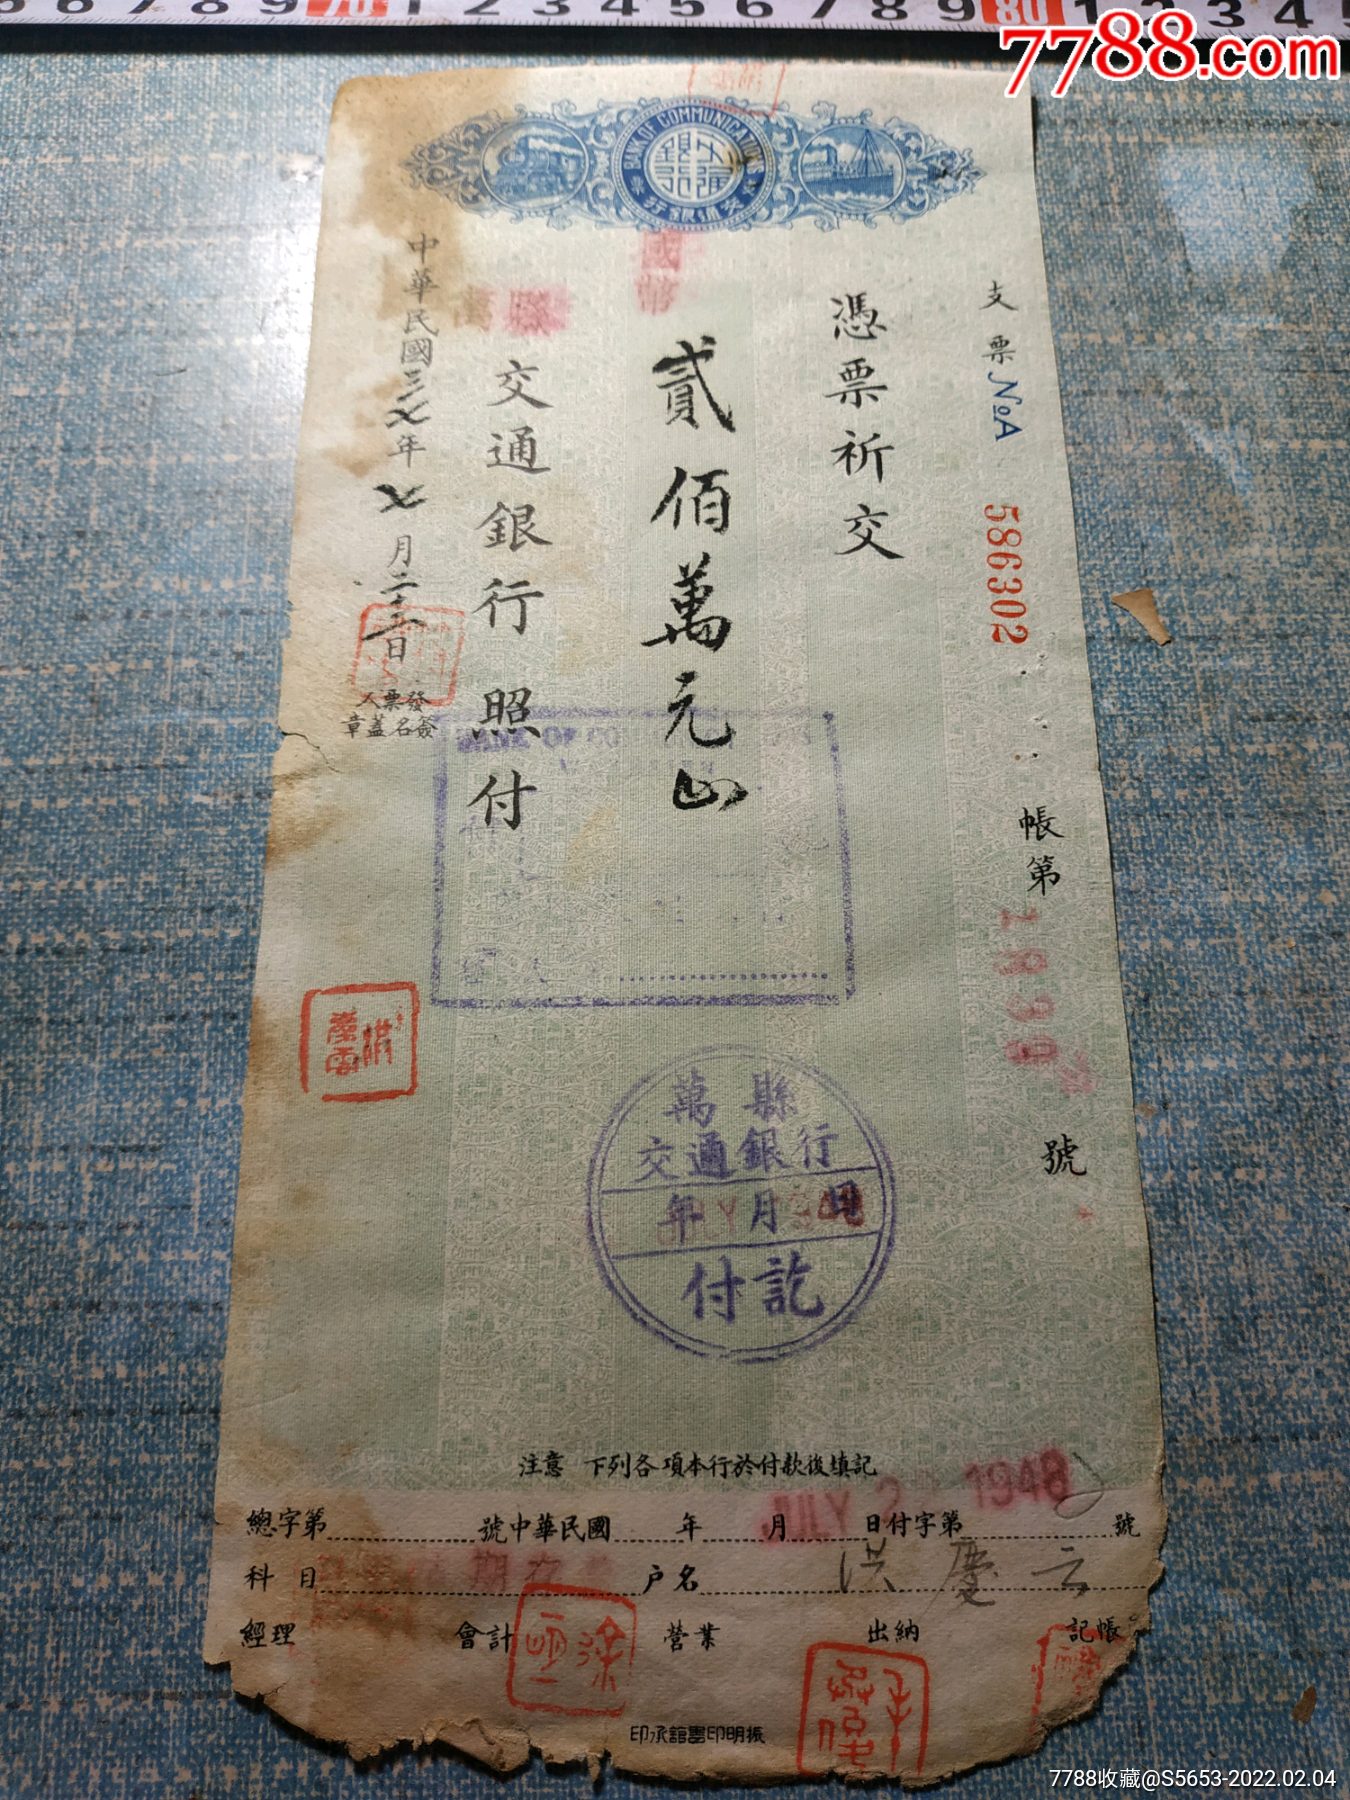 5 6 7 8 9 70 1 2 3 4 5 6 7 8 9 80 1 2 3 4
7788.com
BANK OF COMMUNICATIONS
行銀通交
支票 No A 586302
帳第 1839 號
憑票祈交
國幣
貳佰萬元正
萬縣
交通銀行照付
中華民國三七年七月二十三日
發票人
簽名蓋章
洪慶雲
BANK OF CO
萬縣
交通銀行
年月日
付訖
注意 下列各項本行於付款後填記
JULY 2 1948
總字第 號中華民國 年 月 日付字第 號
科目 戶名 洪慶云
經理 會計 營業 出納 記帳
振明印書館承印
7788收藏@S5653-2022.02.04